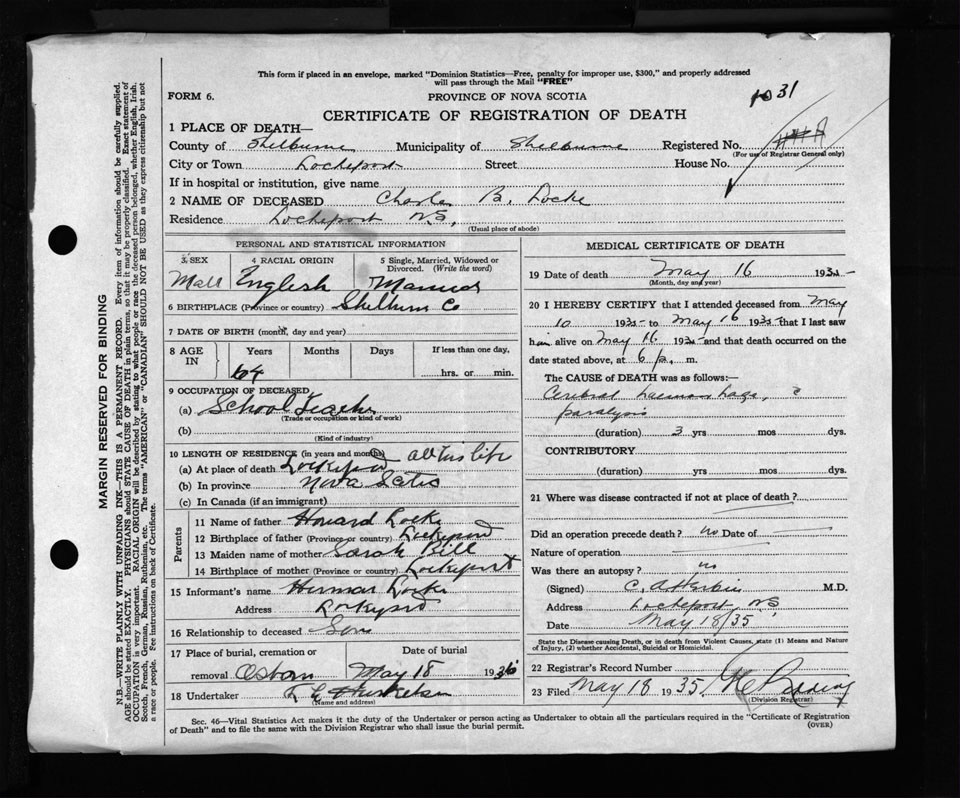 This form if placed in an envelope, marked "Dominion Statistics—Free, penalty for improper use, $300," and properly addressed
will pass through the Mail "FREE"
FORM 6. PROVINCE OF NOVA SCOTIA 1031
CERTIFICATE OF REGISTRATION OF DEATH
1 PLACE OF DEATH—
County of Shelburne Municipality of Shelburne Registered No.
(For use of Registrar General only)
City or Town Lockeport Street House No.
If in hospital or institution, give name
2 NAME OF DECEASED Charles B. Locke
Residence Lockeport N.S.
(Usual place of abode)
PERSONAL AND STATISTICAL INFORMATION
3 SEX 4 RACIAL ORIGIN 5 Single, Married, Widowed or Divorced. (Write the word)
Male English Married
6 BIRTHPLACE (Province or country) Shelburne Co
7 DATE OF BIRTH (month, day and year)
8 AGE IN Years Months Days If less than one day,
64 hrs. or min.
9 OCCUPATION OF DECEASED
(a) School Teacher
(Trade or occupation or kind of work)
(b)
(Kind of industry)
10 LENGTH OF RESIDENCE (in years and months) all his life
(a) At place of death Lockeport
(b) In province Nova Scotia
(c) In Canada (if an immigrant)
Parents
11 Name of father Howard Locke
12 Birthplace of father (Province or country) Lockeport
13 Maiden name of mother Sarah Bill
14 Birthplace of mother (Province or country) Lockeport
15 Informant's name Herman Locke
Address Lockeport
16 Relationship to deceased Son
17 Place of burial, cremation or removal Date of burial
Osborn May 18 193
18 Undertaker
(Name and address)
MEDICAL CERTIFICATE OF DEATH
19 Date of death May 16 1935
(Month, day and year)
20 I HEREBY CERTIFY that I attended deceased from May
10 1935 to May 16 1935 that I last saw
him alive on May 16 1935 and that death occurred on the
date stated above, at 6 p. m.
The CAUSE of DEATH was as follows:—
Cerebral haemorrhage,
paralysis
(duration) 3 yrs mos dys.
CONTRIBUTORY
(duration) yrs mos dys.
21 Where was disease contracted if not at place of death?
Did an operation precede death? no Date of
Nature of operation
Was there an autopsy? no
(Signed) C. M.D.
Address Lockeport, NS
Date May 18/35
State the Disease causing Death, or in death from Violent Causes, state (1) Means and Nature
of Injury, (2) whether Accidental, Suicidal or Homicidal.
22 Registrar's Record Number
23 Filed May 18 1935.
(Division Registrar)
Sec. 46—Vital Statistics Act makes it the duty of the Undertaker or person acting as Undertaker to obtain all the particulars required in the "Certificate of Registration
of Death" and to file the same with the Division Registrar who shall issue the burial permit. (OVER)
MARGIN RESERVED FOR BINDING
N.B.—WRITE PLAINLY WITH UNFADING INK—THIS IS A PERMANENT RECORD. Every item of information should be carefully supplied.
AGE should be stated EXACTLY. PHYSICIANS should STATE CAUSE OF DEATH in plain terms, so that it may be properly classified. Exact statement of
OCCUPATION is very important. RACIAL ORIGIN will be described by stating to what people or race the deceased person belonged, whether English, Irish,
Scotch, French, German, Russian, Ruthenian, etc. The terms "AMERICAN" or "CANADIAN" SHOULD NOT BE USED as they express citizenship but not
a race or people. See instructions on back of Certificate.